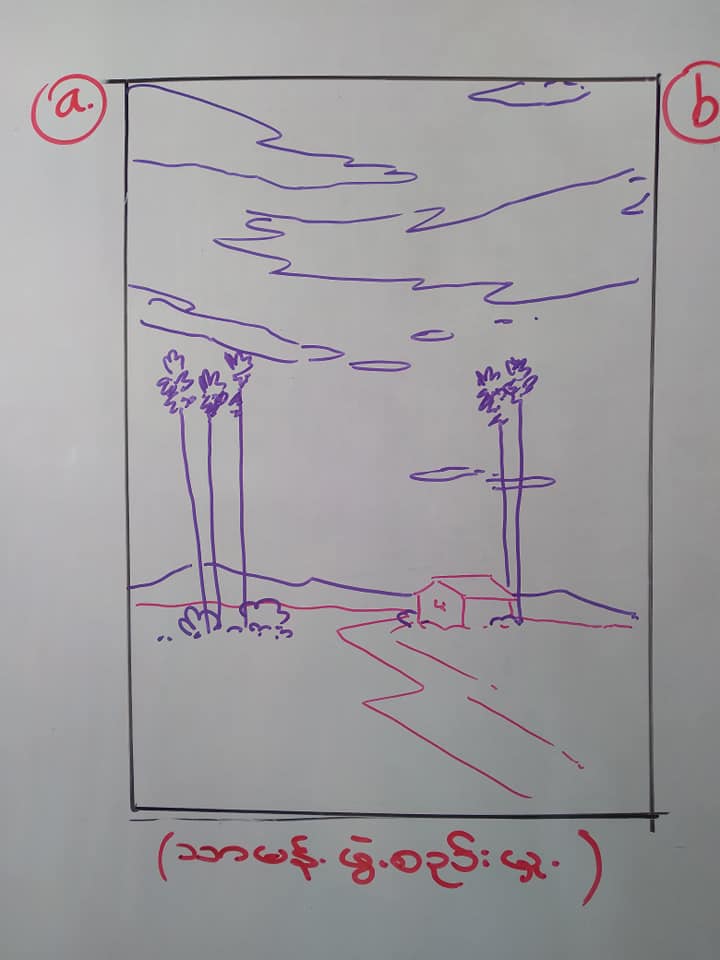 a.
b
(သာမန်. ဖွဲ့.စည်းမှု.)